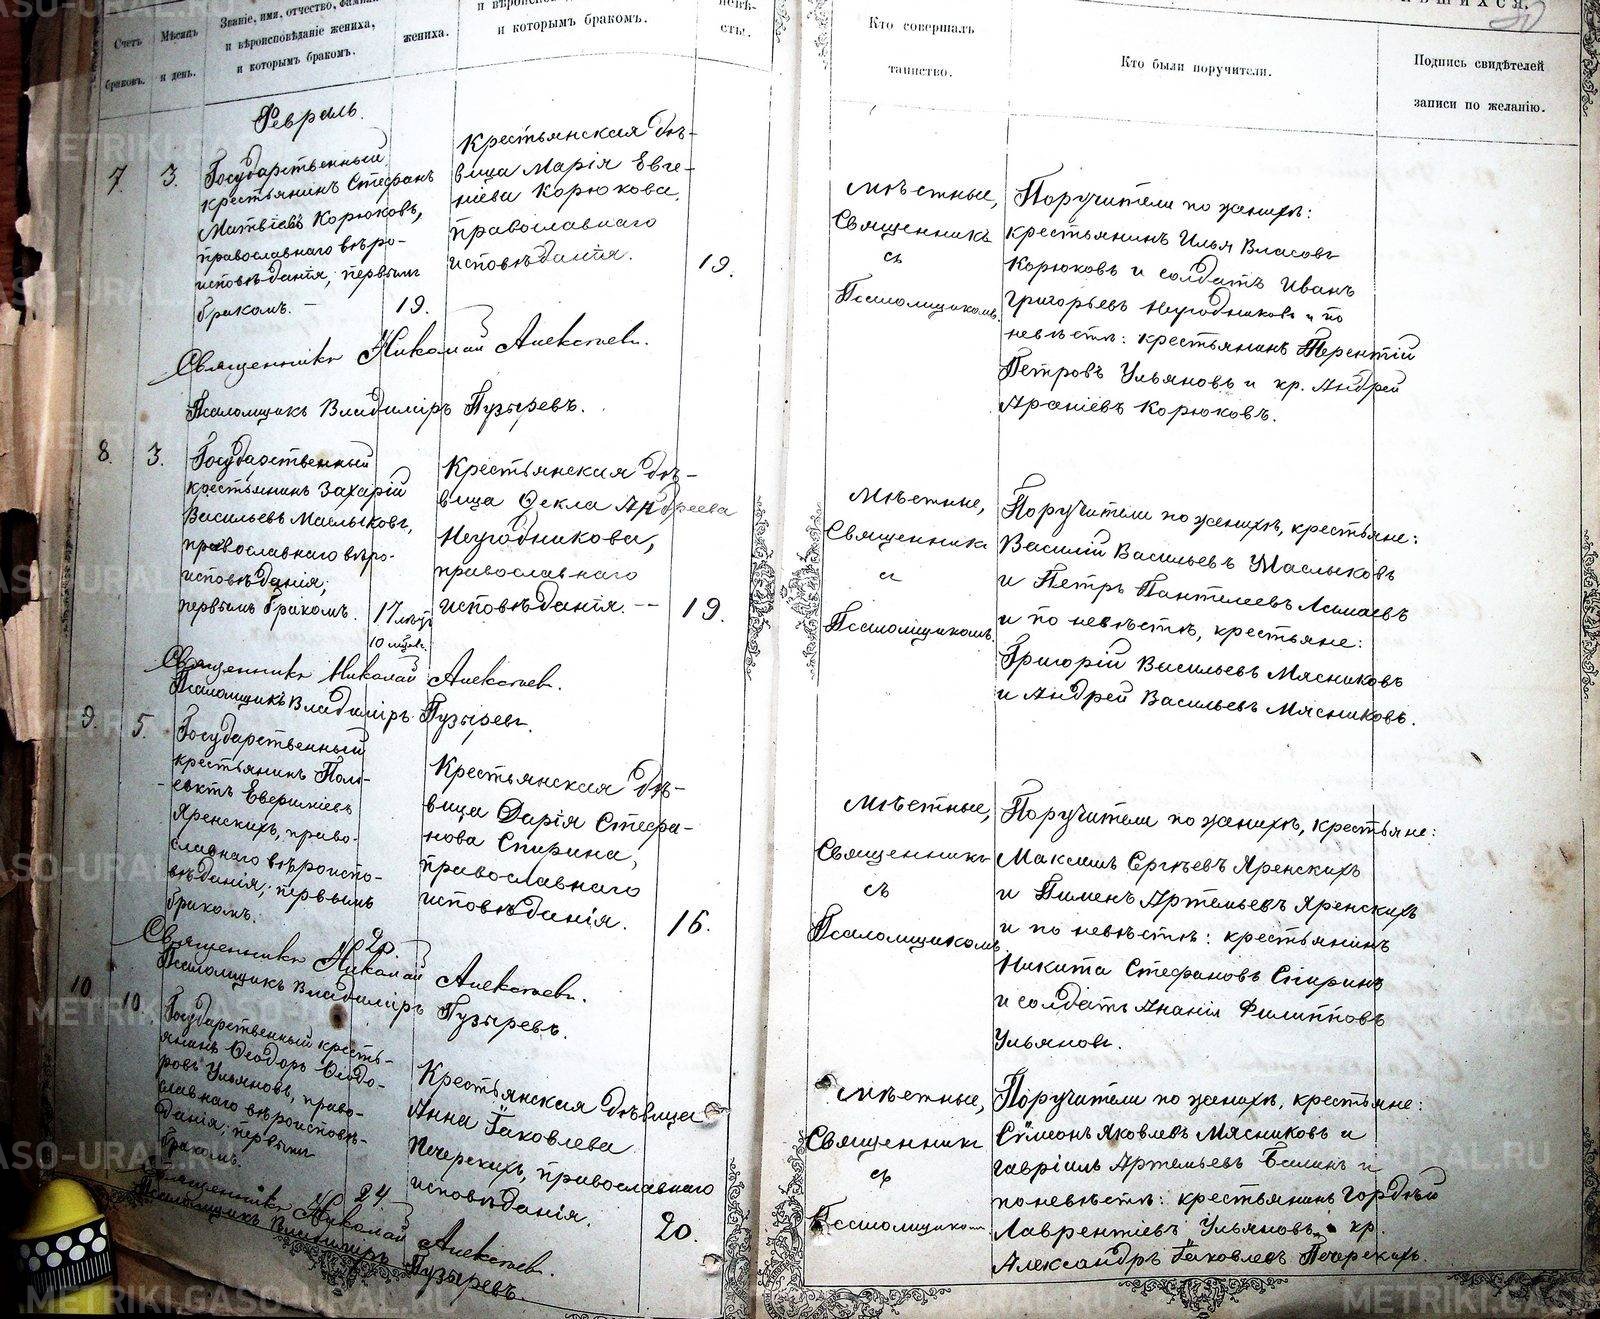 Счетъ
браковъ.
Мѣсяцъ
и день.
Званіе, имя, отчество, фамилія
и вѣроисповѣданіе жениха,
и которымъ бракомъ.
жениха.
и которымъ бракомъ.
невѣ-
сты.
Февраль.
7. 3.
Государственный
крестьянинъ Стефанъ
Матвіевъ Корюковъ,
православнаго вѣро-
исповѣданія, первымъ
бракомъ. —
19.
Крестьянская дѣ-
вица Марія Евге-
ніева Корюкова,
православнаго
исповѣданія.
19.
Священникъ Николай Алексѣевъ.
Псаломщикъ Владиміръ Пузыревъ.
8. 3.
Государственный
крестьянинъ Захарій
Васильевъ Маслыковъ,
православнаго вѣро-
исповѣданія;
первымъ бракомъ.
17 лѣтъ
10 мѣсяц.
Крестьянская дѣ-
вица Ѳекла Андреева
Неугодникова,
православнаго
исповѣданія. —
19.
Священникъ Николай Алексѣевъ.
Псаломщикъ Владиміръ Пузыревъ.
9. 5.
Государственный
крестьянинъ Поли-
евктъ
Яренскихъ, право-
славнаго вѣроиспо-
вѣданія; первымъ
бракомъ.
20.
Крестьянская дѣ-
вица Дарія Стефа-
нова Спирина,
православнаго
исповѣданія.
16.
Священникъ Николай Алексѣевъ.
Псаломщикъ Владиміръ Пузыревъ.
10 10.
Государственный кресть-
янинъ Ѳеодоръ Ѳеодо-
ровъ Ульяновъ, право-
славнаго вѣроисповѣ-
данія; первымъ
бракомъ.
24.
Крестьянская дѣвица
Анна Іаковлева
Печерскихъ, православнаго
исповѣданія.
20.
Священникъ Николай Алексѣевъ.
Псаломщикъ Владиміръ Пузыревъ.
Кто совершалъ
таинство.
Кто были поручители.
Подпись свидѣтелей
записи по желанію.
Мѣстные,
Священникъ
съ
Псаломщикомъ.
Поручители по женихѣ:
крестьянинъ Илья Власовъ
Корюковъ и солдатъ Иванъ
Григорьевъ Неугодниковъ и по
невѣстѣ: крестьянинъ Терентій
Петровъ Ульяновъ и кр. Андрей
Корюковъ.
Мѣстные,
Священникъ
съ
Псаломщикомъ.
Поручители по женихѣ, крестьяне:
Василій Васильевъ Маслыковъ
и Петръ Пантелеевъ
и по невѣстѣ, крестьяне:
Григорій Васильевъ Мясниковъ
и Андрей Васильевъ Мясниковъ.
Мѣстные,
Священникъ
съ
Псаломщикомъ
Поручители по женихѣ, крестьяне:
Максимъ Сергѣевъ Яренскихъ
и Пименъ Артемьевъ Яренскихъ
и по невѣстѣ: крестьянинъ
Никита Стефановъ Спиринъ
и солдатъ Ананій Филипповъ
Ульяновъ.
Мѣстные,
Священникъ
съ
Псаломщикомъ
Поручители по женихѣ, крестьяне:
Симеонъ Яковлевъ Мясниковъ и
Гавріилъ Артемьевъ Балинъ и
по невѣстѣ: крестьянинъ Гордѣй
Лаврентіевъ Ульяновъ, и кр.
Александръ Іаковлевъ Печерскихъ.
METRIKI.GASO-URAL.RU